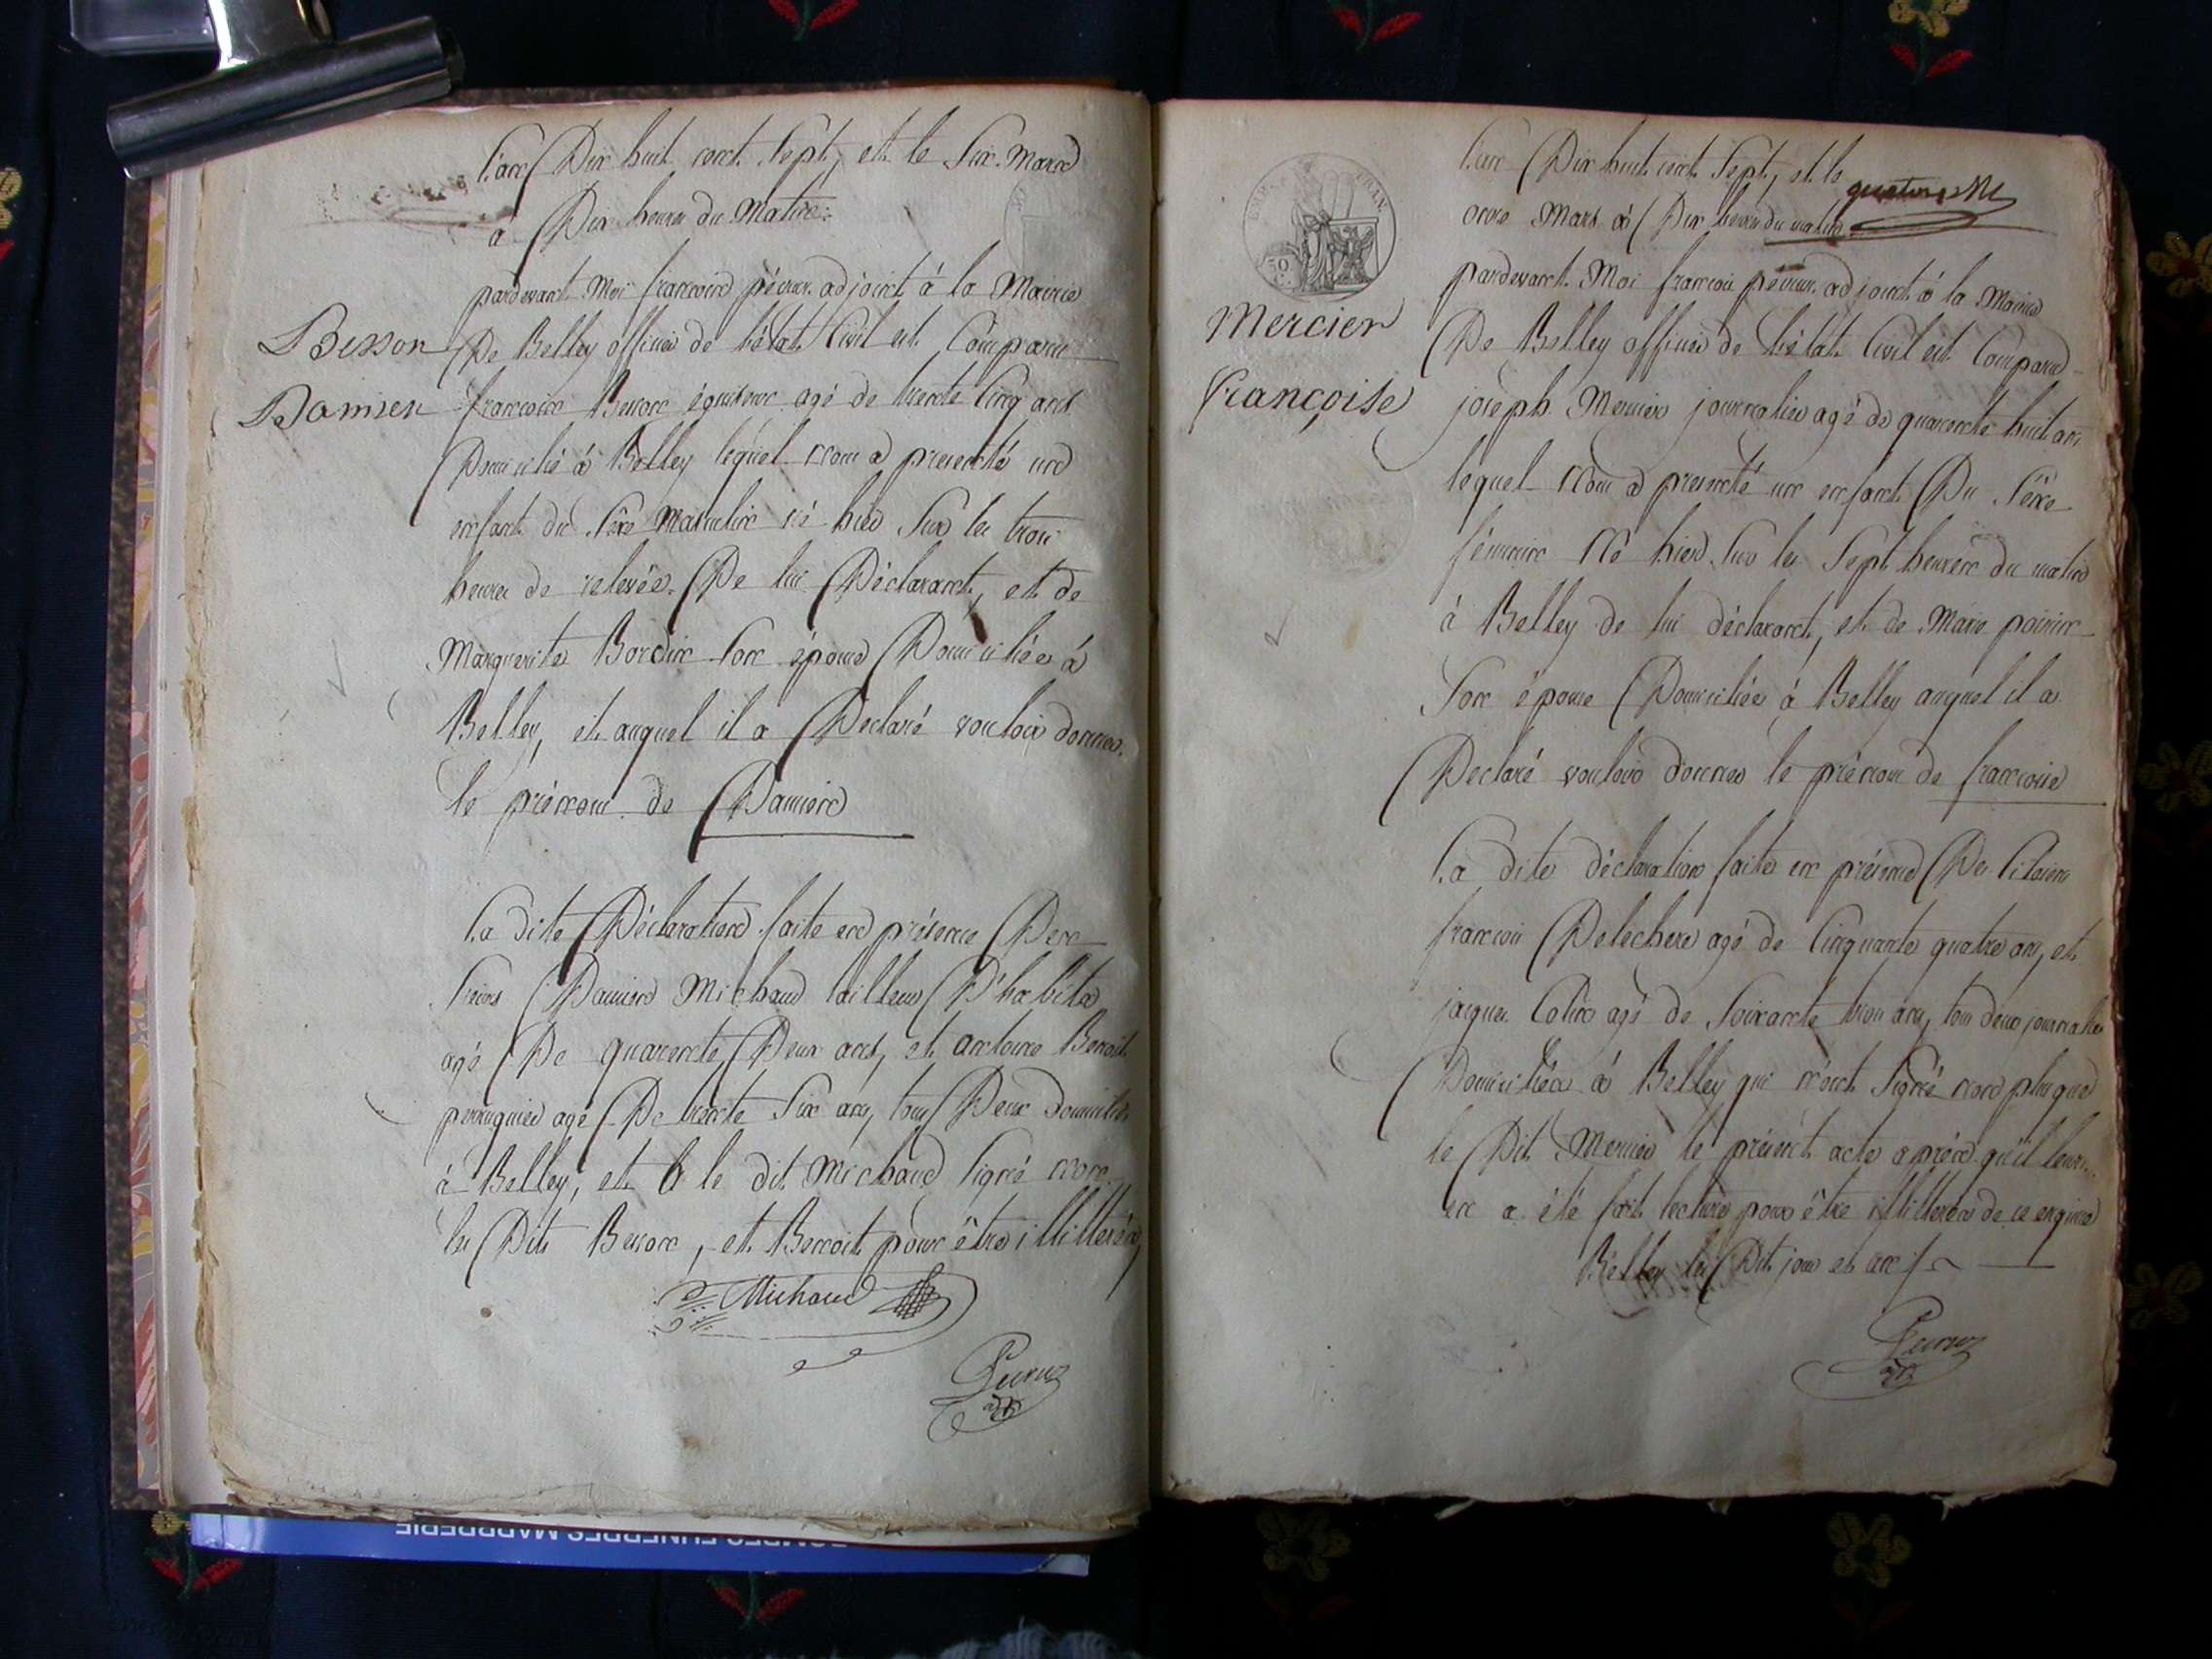 L'an Dix huit cent Sept, et le Six Mars
à Dix heures du Matin
pardevant Moi françois péuruz adjoint à la Mairie
De Belley officier de l'état Civil est Comparu
Besson
Damien
françois Besson équiseur agé de trente Cinq ans
Domicilié à Belley lequel nous a presenté un
enfant du Séxe Masculin né hier Sur les trois
heures de relevée. De lui Déclarant, et de
Marguerite Bordin Son épouse Domiciliée à
Belley, et auquel il a Declaré vouloir donner
le prénom de Damien
La dite Déclaration faite en présence Des
Sieurs Damien Michaud tailleur D'habits
agé De quarente Deux ans, et antoine Benoit
perruquier agé De trente Six ans, tous Deux Domiciliés
à Belley, et a le dit Michaud Signé non
les Dits Besson, et Benoit pour être illitterés,
Michaud
Peuruz
EMP. FRAN.
Mercier
françoise
L'an Dix huit cent Sept, et le
onze Mars à Dix heures du matin
pardevant Moi françois péuruz adjoint à la Mairie
De Belley officier de l'état Civil est Comparu
joseph Mercier journalier agé de quarente huit ans
lequel nous a presenté un enfant Du Séxe
féminin Né hier Sur les Sept heures du matin
à Belley de lui déclarant, et de Marie poirin
Son épouse Domiciliée à Belley auquel il a
Declaré vouloir donner le prénom de françoise
La dite déclaration faite en présence Des Citoiens
françois Delechere agé de Cinquante quatre ans, et
jacques Colin agé de Soixante trois ans, tous deux journaliers
Domiciliés à Belley qui n'ont Signé non plus que
le Dit Mercier le présent acte après qu'il leur
en a été fait lecture pour être illitterés de ce enquis
Belley les Dit jour et an
Peuruz